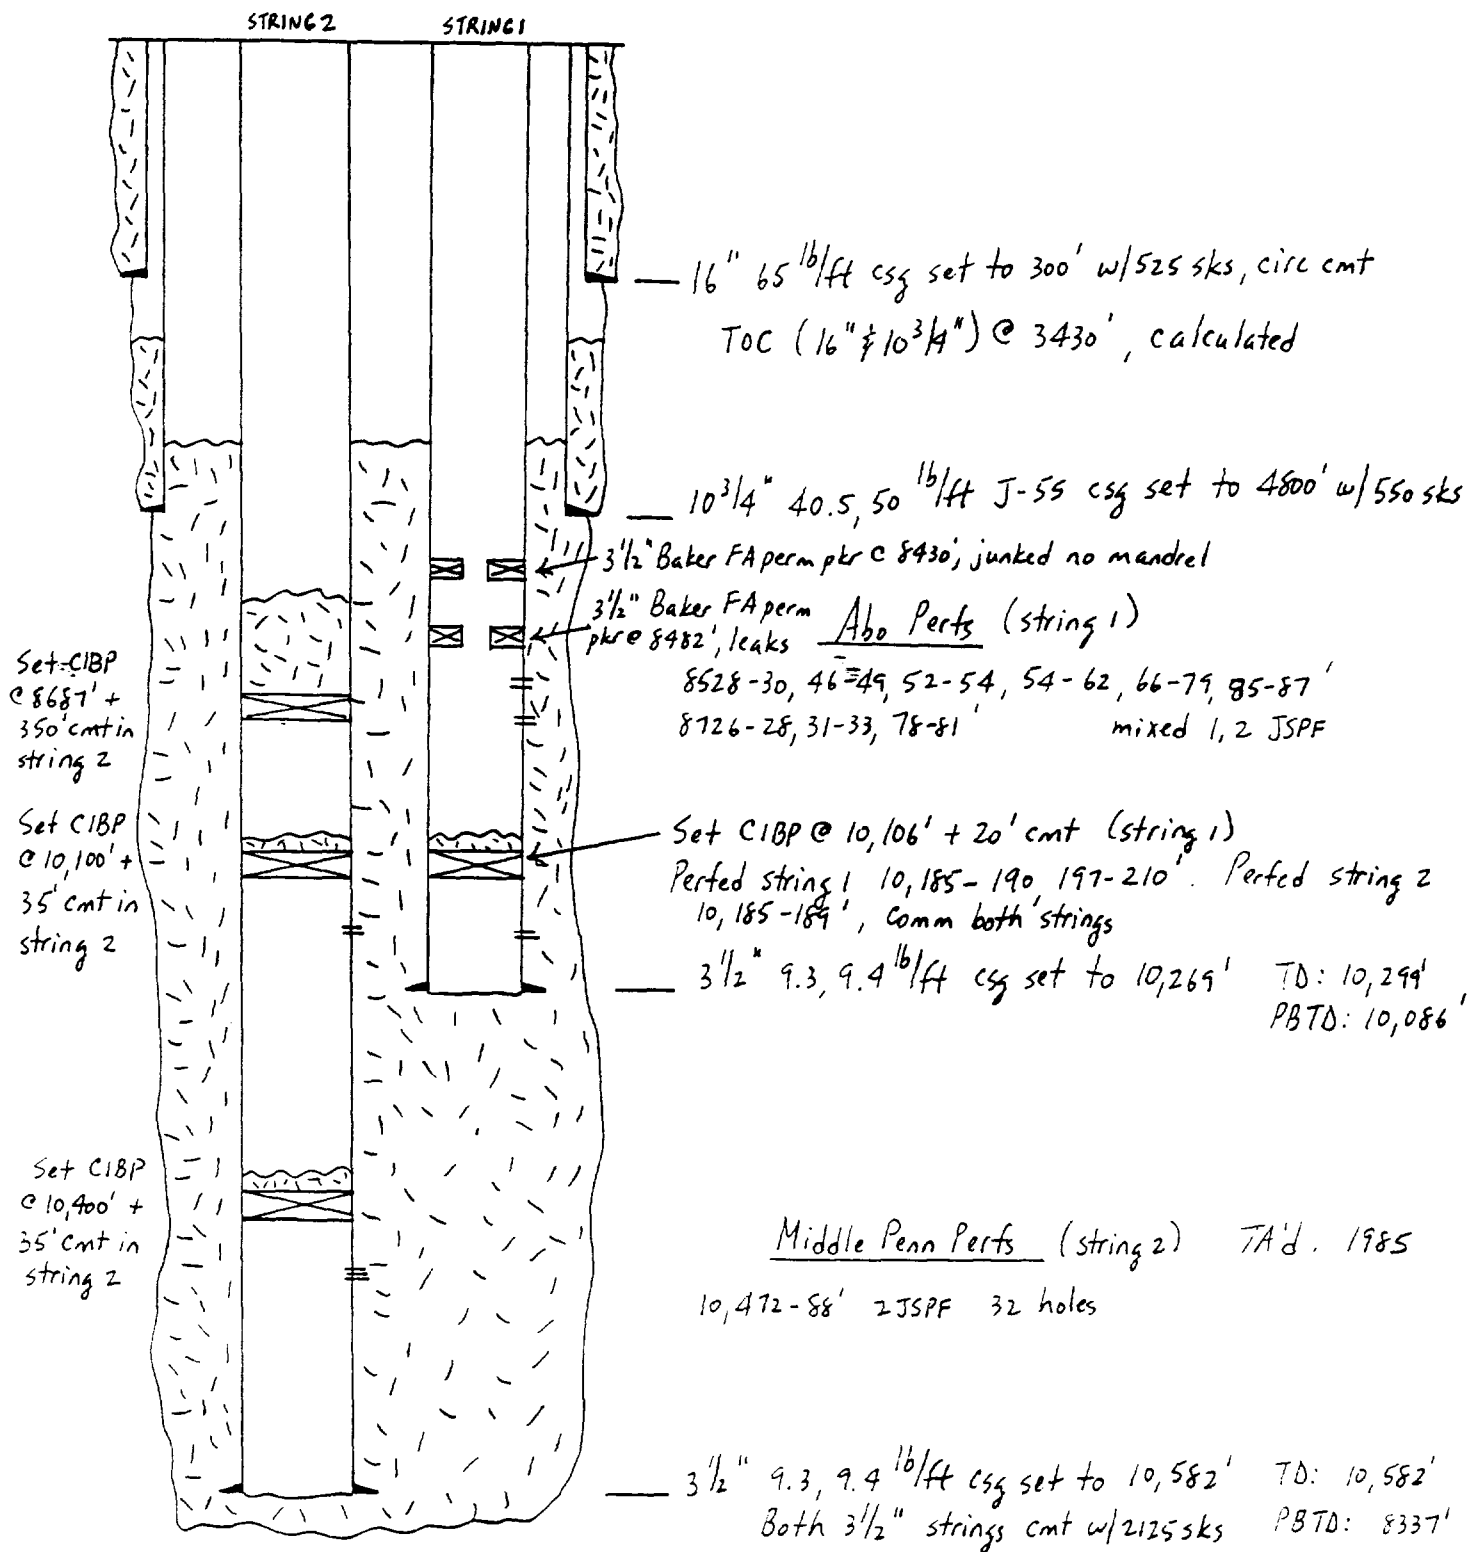 STRING 2 STRING 1
16" 65 lb/ft csg set to 300' w/525 sks, circ cmt
TOC (16" & 10 3/4") @ 3430', calculated
10 3/4" 40.5, 50 lb/ft J-55 csg set to 4800' w/550 sks
3 1/2" Baker FA perm pkr @ 8430', junked no mandrel
3 1/2" Baker FA perm
pkr @ 8482', leaks
Abo Perfs (string 1)
8528-30, 46-49, 52-54, 54-62, 66-79, 85-87'
8726-28, 31-33, 78-81' mixed 1, 2 JSPF
Set CIBP
@ 8687' +
350' cmt in
string 2
Set CIBP
@ 10,100' +
35' cmt in
string 2
Set CIBP @ 10,106' + 20' cmt (string 1)
Perfed string 1 10,185-190, 197-210'. Perfed string 2
10,185-189', comm both strings
3 1/2" 9.3, 9.4 lb/ft csg set to 10,269' TD: 10,299'
PBTD: 10,086'
Set CIBP
@ 10,400' +
35' cmt in
string 2
Middle Penn Perfs (string 2) TA'd. 1985
10,472-88' 2 JSPF 32 holes
3 1/2" 9.3, 9.4 lb/ft csg set to 10,582' TD: 10,582'
Both 3 1/2" strings cmt w/2125 sks PBTD: 8337'